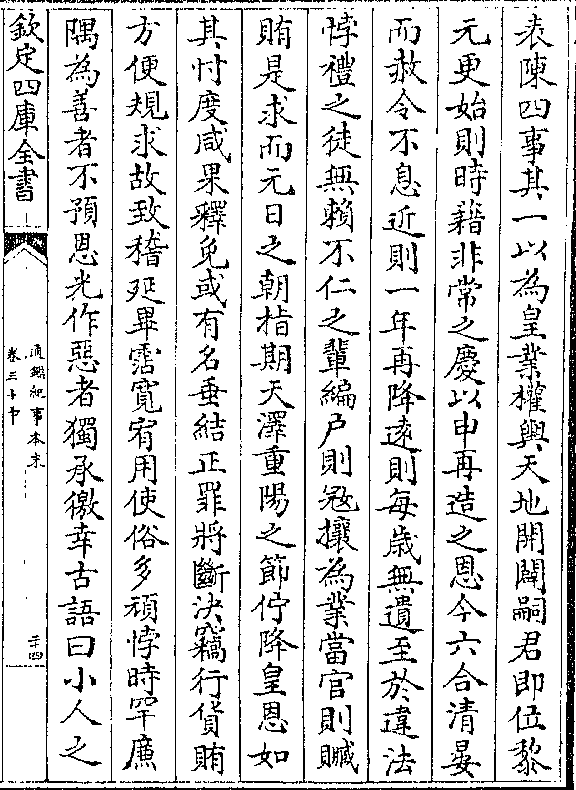 表陳四事其一以為皇業權輿天地開闢嗣君即位黎
元更始則時藉非常之慶以申再造之恩今六合清晏
而赦令不息近則一年再降遠則每歲無遺至於違法
悖禮之徒無賴不仁之輩編户則㓂攘為業當官則贓
賄是求而元日之朝指期天澤重陽之節佇降皇恩如
其忖度咸果釋免或有名垂結正罪將斷決竊行貨賄
方便規求故致稽延畢霑寛宥用使俗多頑悖時罕廉
隅為善者不預恩光作惡者獨承徼幸古語曰小人之
欽定四庫全書
通鑑紀事本末
卷三十中
二十四